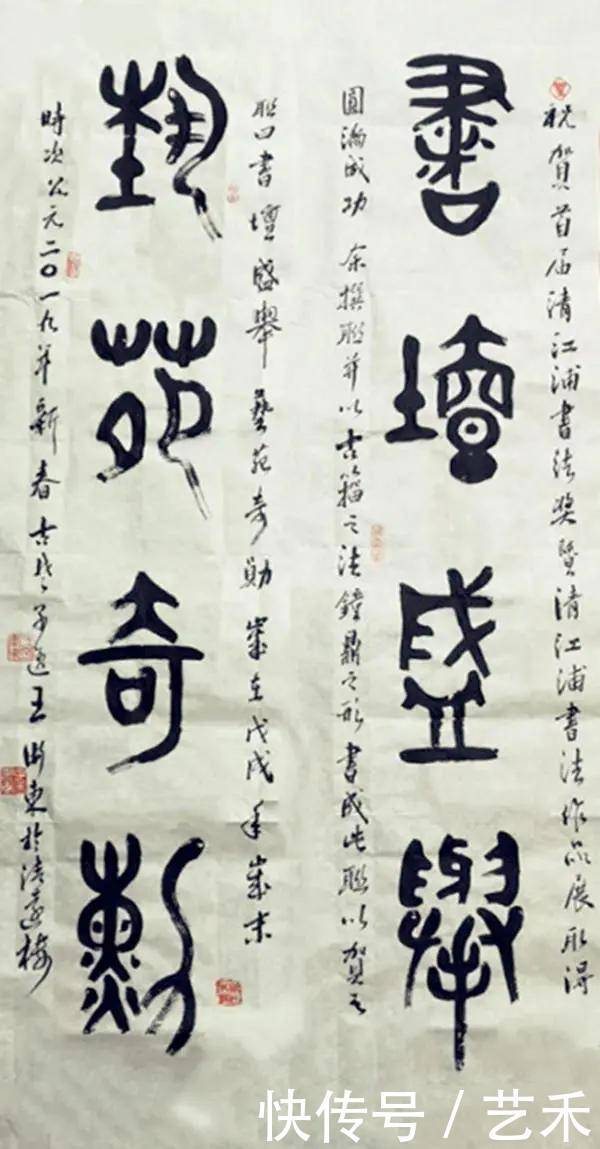 祝賀首届清江浦書法獎暨清江浦書法作品展取得
書壇盛舉
圓滿成功 余撰聯并以古籀之法鐘鼎之形書成此聯以賀之
聯曰書壇盛舉藝苑奇勛 歲在戊戌年歲末
藝苑奇勳
時次公元二〇一九年新春 王 東於清
快传号 / 艺禾